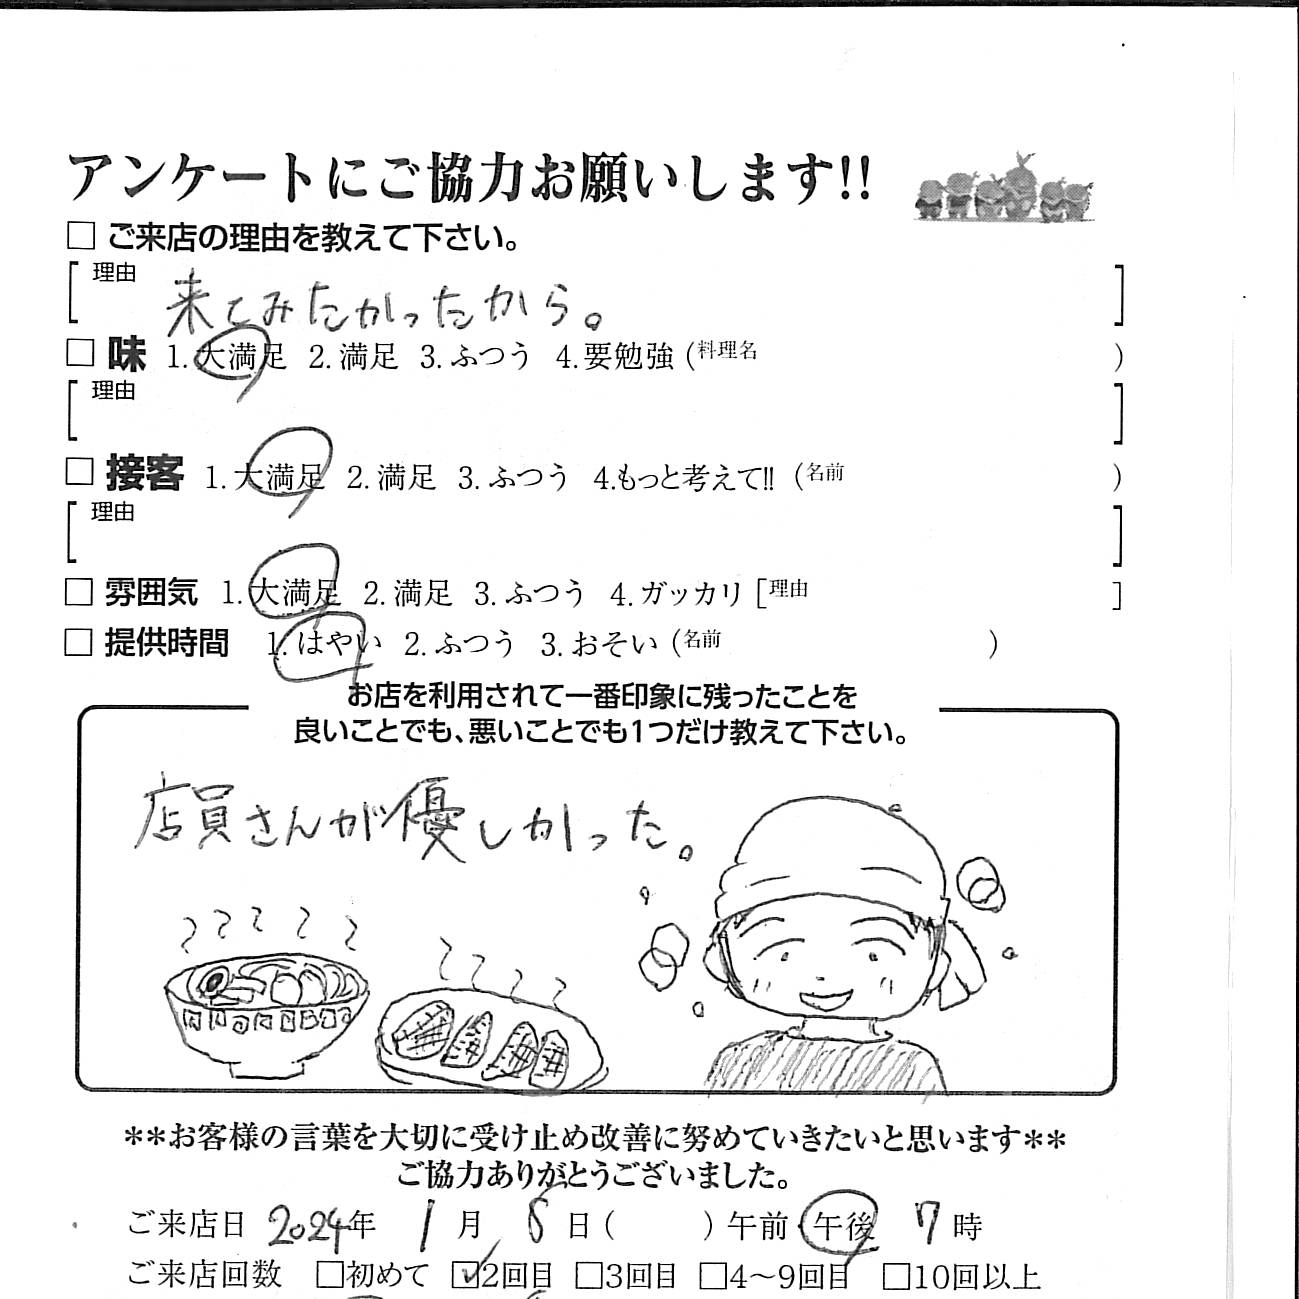 アンケートにご協力お願いします!!
□ ご来店の理由を教えて下さい。
[ 理由 来てみたかったから。 ]
□ 味 1.大満足 2.満足 3.ふつう 4.要勉強 (料理名 )
[ 理由 ]
□ 接客 1.大満足 2.満足 3.ふつう 4.もっと考えて!! (名前 )
[ 理由 ]
□ 雰囲気 1.大満足 2.満足 3.ふつう 4.ガッカリ [理由 ]
□ 提供時間 1.はやい 2.ふつう 3.おそい (名前 )
お店を利用されて一番印象に残ったことを
良いことでも、悪いことでも1つだけ教えて下さい。
店員さんが優しかった。
**お客様の言葉を大切に受け止め改善に努めていきたいと思います**
ご協力ありがとうございました。
ご来店日 2024年 1月 8日 ( ) 午前・午後 7時
ご来店回数 □初めて ☑2回目 □3回目 □4～9回目 □10回以上